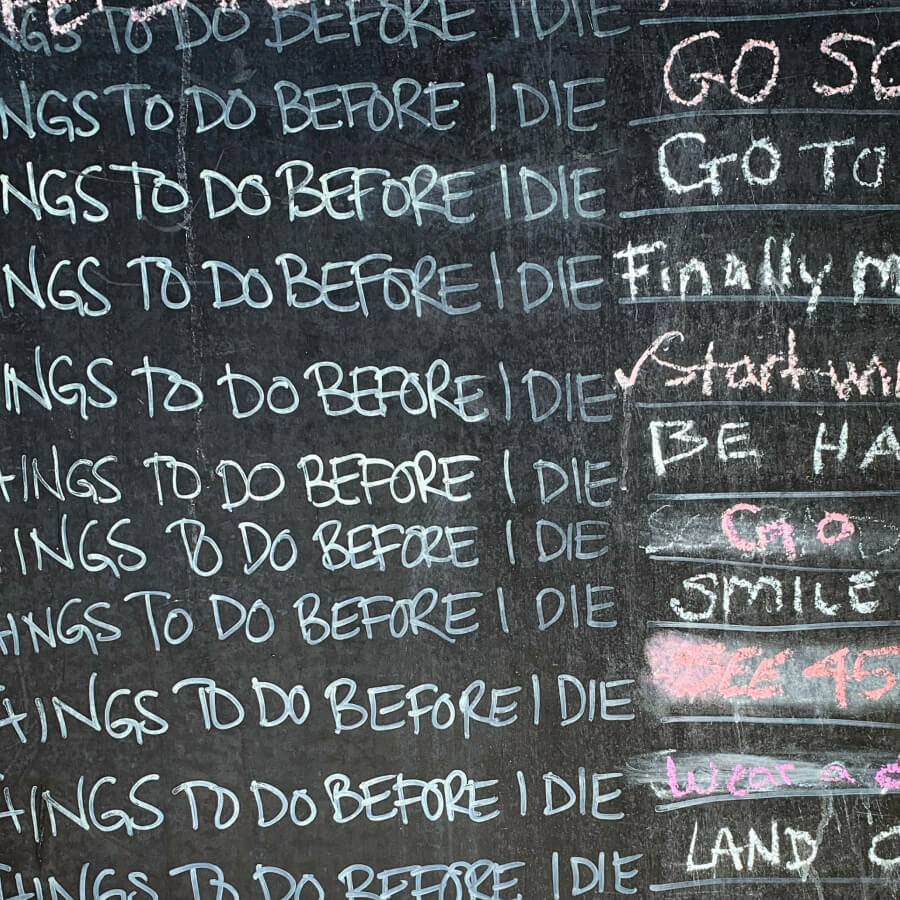 NGS TO DO BEFORE I DIE
NGS TO DO BEFORE I DIE GO SC
NGS TO DO BEFORE I DIE GO TO
NGS TO DO BEFORE I DIE Finally m
INGS TO DO BEFORE I DIE Start
HINGS TO DO BEFORE I DIE BE HA
INGS TO DO BEFORE I DIE GO
HINGS TO DO BEFORE I DIE SMILE
HINGS TO DO BEFORE I DIE SEE 45
HINGS TO DO BEFORE I DIE Wear a
HINGS TO DO BEFORE I DIE LAND